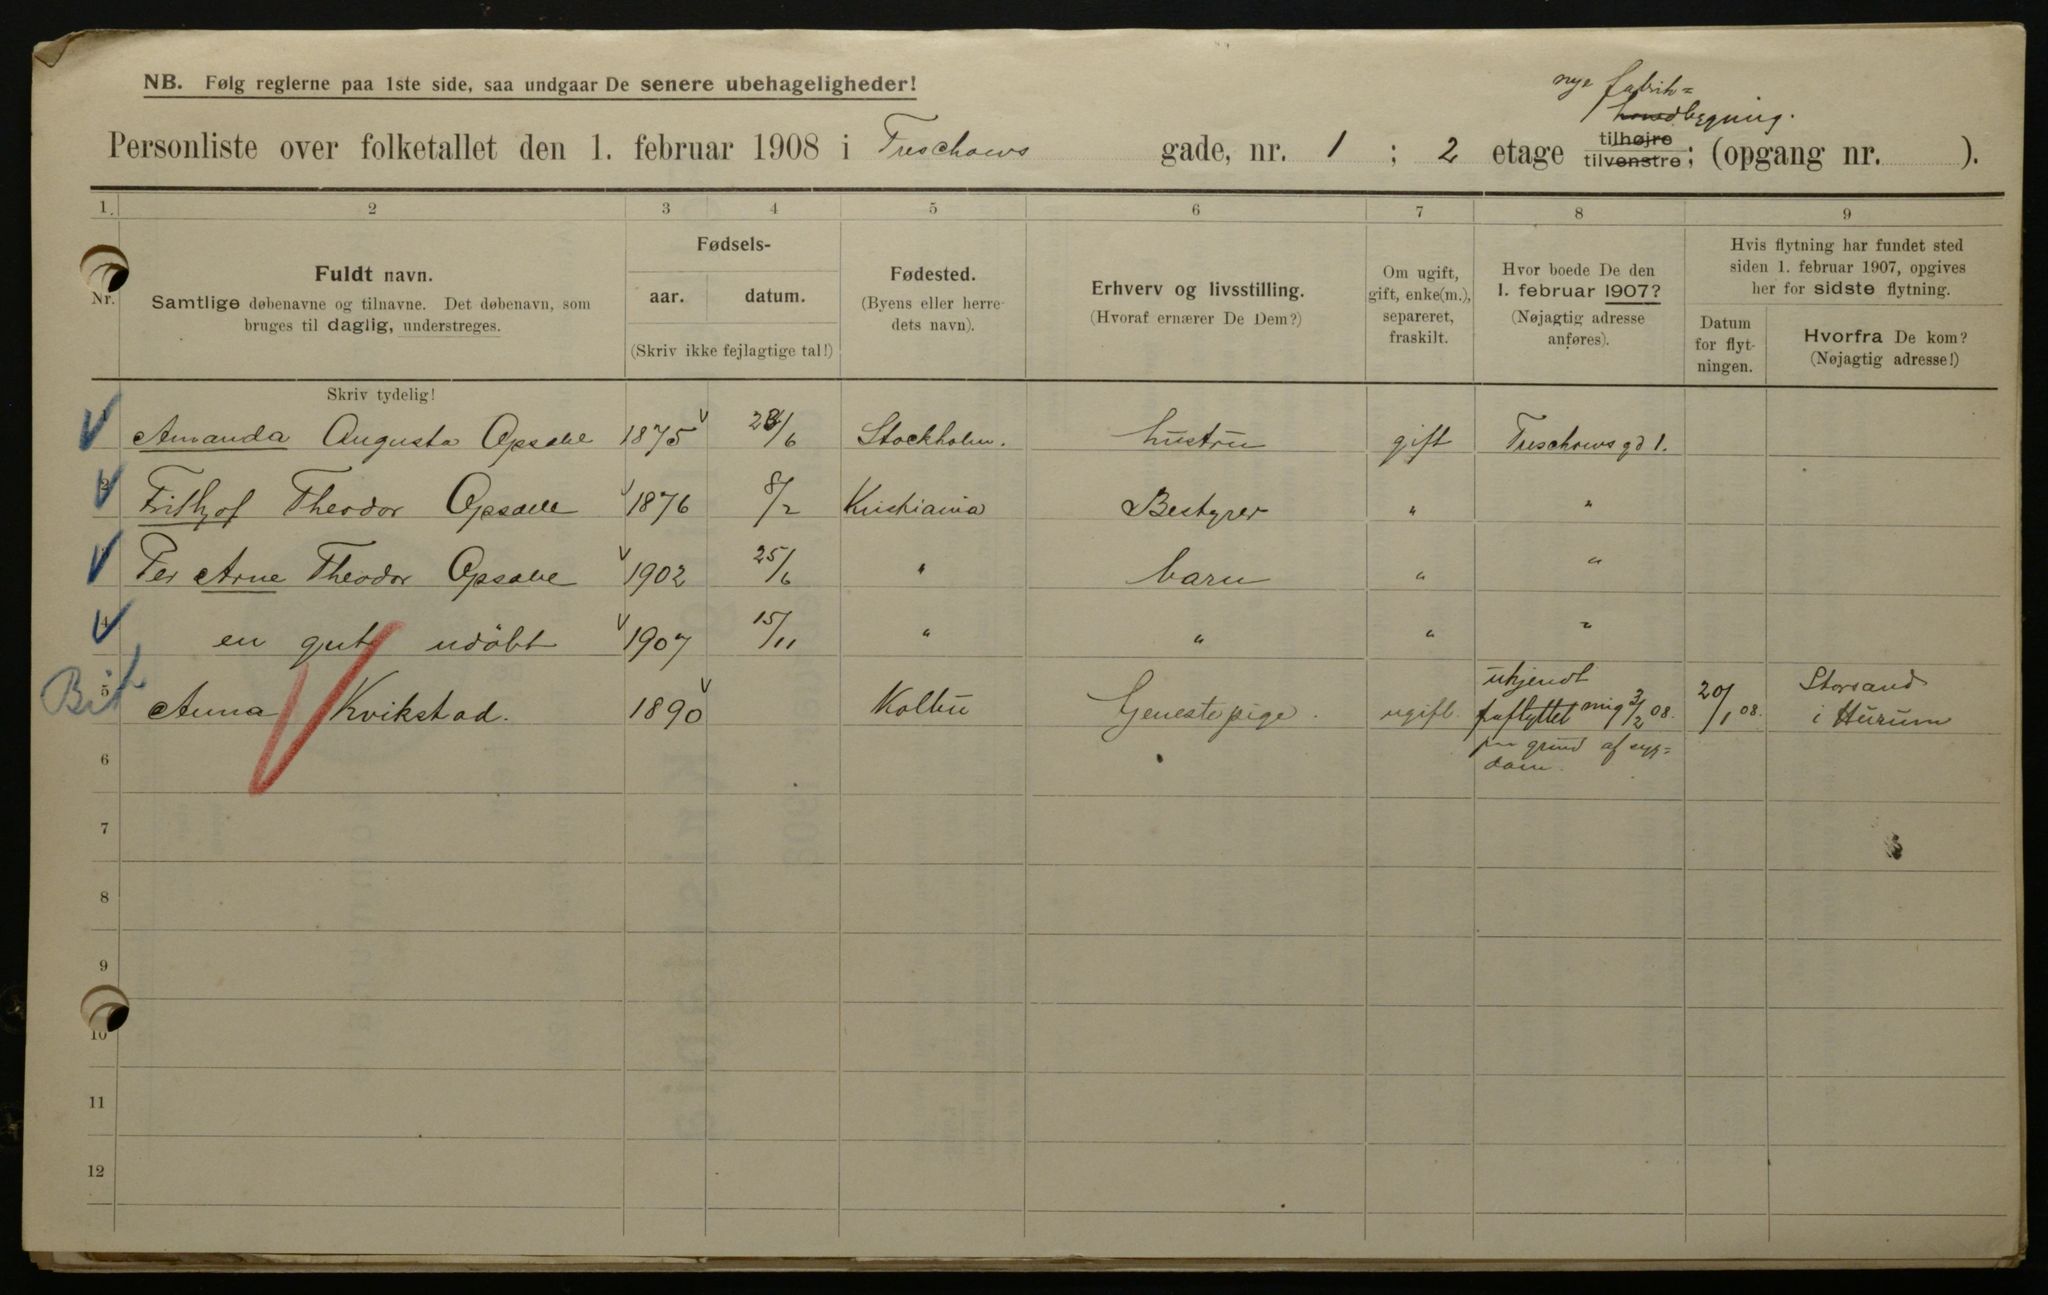 NB. Følg reglerne paa 1ste side, saa undgaar De senere ubehageligheder!
nye fabrik=
bygning.
Personliste over folketallet den 1. februar 1908 i Treschows gade, nr. 1 ; 2 etage tilhøjre tilvenstre; (opgang nr. ).
1. 2 3 4 5 6 7 8 9
Nr.
Fuldt navn.
Samtlige døbenavne og tilnavne. Det døbenavn, som
bruges til daglig, understreges.
Fødsels-
aar. datum.
(Skriv ikke fejlagtige tal!)
Fødested.
(Byens eller herre-
dets navn).
Erhverv og livsstilling.
(Hvoraf ernærer De Dem?)
Om ugift,
gift, enke(m.),
separeret,
fraskilt.
Hvor boede De den
1. februar 1907?
(Nøjagtig adresse
anføres).
Hvis flytning har fundet sted
siden 1. februar 1907, opgives
her for sidste flytning.
Datum
for flyt-
ningen.
Hvorfra De kom?
(Nøjagtig adresse!)
Skriv tydelig!
1 Amanda Augusta Opsahl 1875 /6 Stockholm. hustru gift Treschows gd 1.
2 Frithjof Theodor Opsahl 1876 8/2 Kristiania Bestyrer " "
Per Arne Theodor Opsahl 1902 25/6 " barn " "
4 en gut udöbt 1907 15/11 " " " "
5 Anna Kvikstad. 1890 Kolbu tjenestepige. ugift. ukjendt
fraflyttet mig 3/2 08.
paa grund af syg=
dom.
20/1 08. Storsand
i Hurum
6
7
8
9
10
11
12